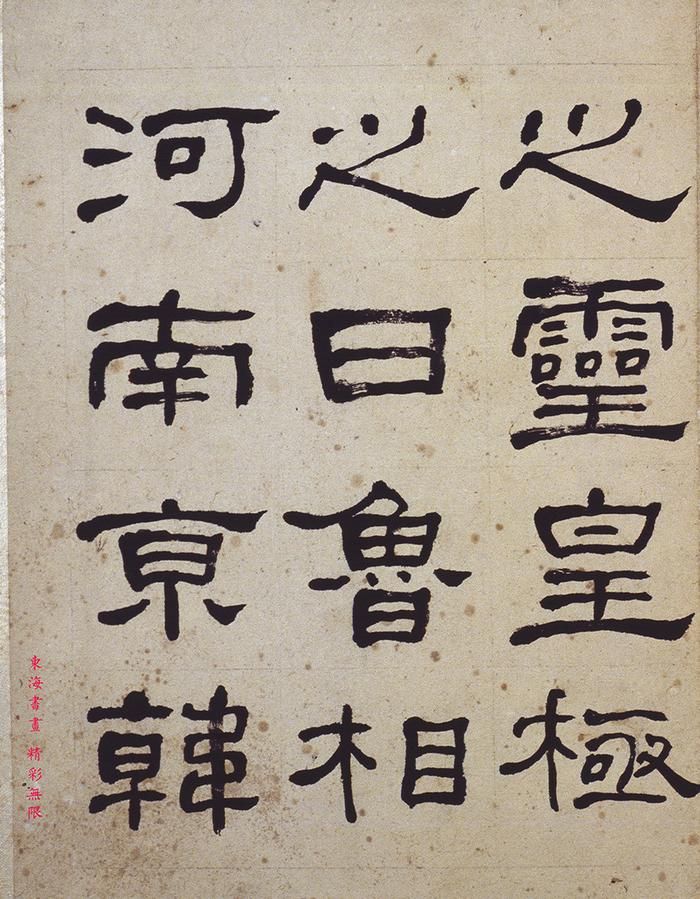 之靈皇極
之日魯相
河南亰韓
東海書畫 精彩無限